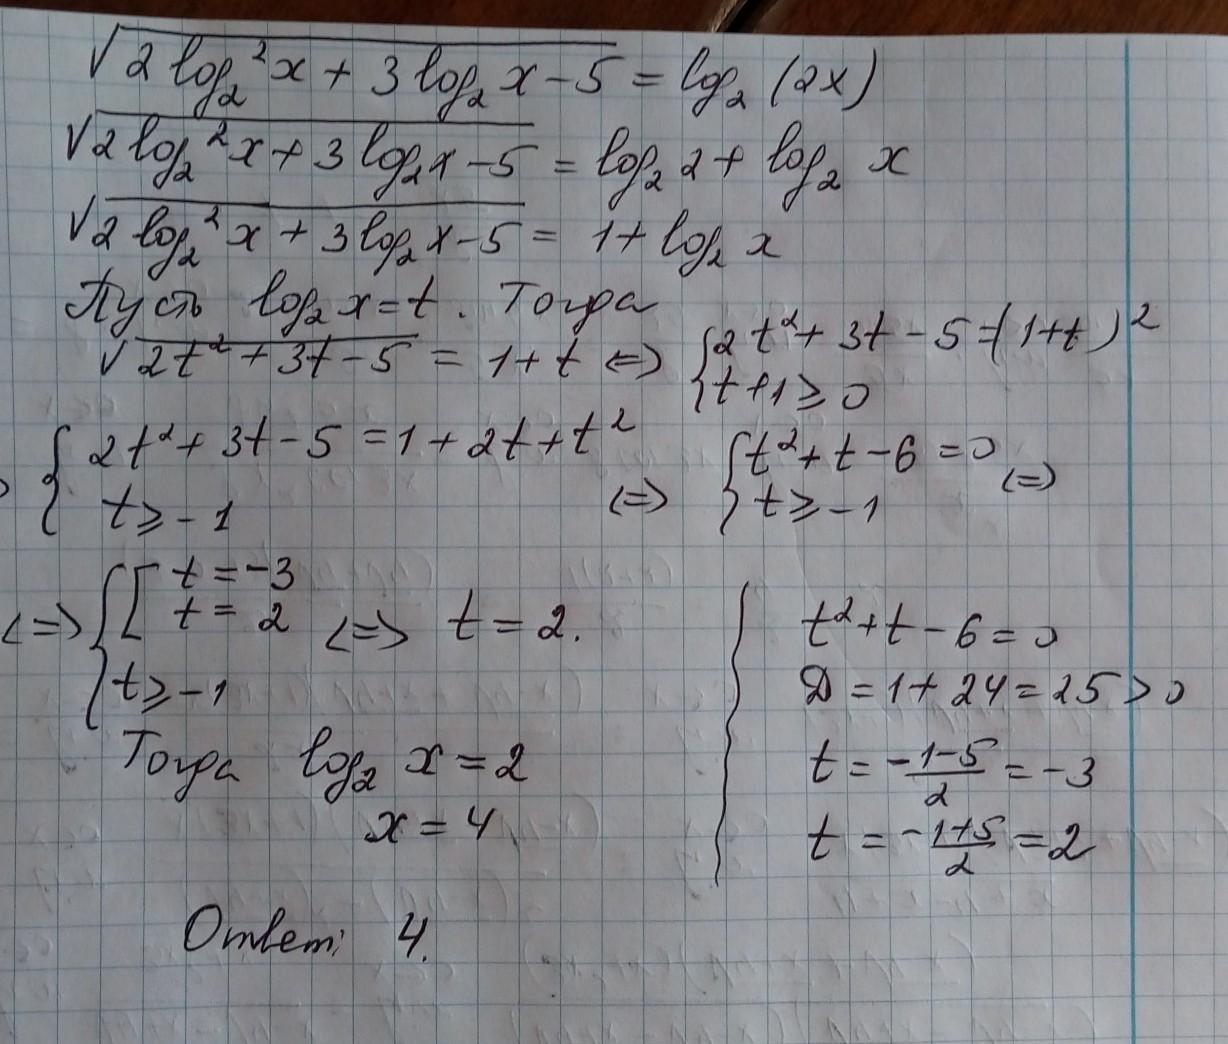 √2log₂²x + 3log₂x - 5 = log₂(2x)
√2log₂²x + 3log₂x - 5 = log₂2 + log₂ x
√2log₂²x + 3log₂x - 5 = 1 + log₂ x
Пусть log₂x = t. Тогда
√2t² + 3t - 5 = 1 + t <=> { 2t² + 3t - 5 = (1+t)²
t + 1 ≥ 0
{ 2t² + 3t - 5 = 1 + 2t + t²
t ≥ -1
<=> { t² + t - 6 = 0
t ≥ -1 <=>
<=> { [ t = -3
t = 2
t ≥ -1 <=> t = 2.
Тогда log₂ x = 2
x = 4
t² + t - 6 = 0
D = 1 + 24 = 25 > 0
t = -1-5/2 = -3
t = -1+5/2 = 2
Ответ: 4.